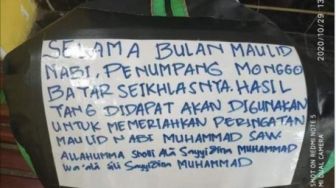 SELAMA BULAN MAULID
NABI, PENUMPANG MONGGO
BATAR SEIKHLASNYA. HASIL
TANG DIDAPAT AKAN DIGUNAKAN
UNTUK MEMERIAHKAN PERINGATAN
MAULID NABI MUHAMMAD SAW
ALLAHUMMA Sholli Ala SayyiDina MUHAMMAD
wa'ala ali SayyiDina MUHAMMAD
2020/10/29 13:
SHOT ON REDMI NOTE 5